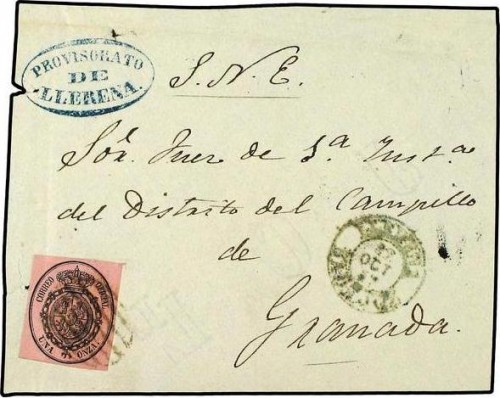 PROVISORATO
DE
LLERENA.
S. N. E.
Sōr. Juez de 1ª Instª
del Distrito del Campillo
de
Granada.
OCT
CORREO OFICIAL
UNA ONZA